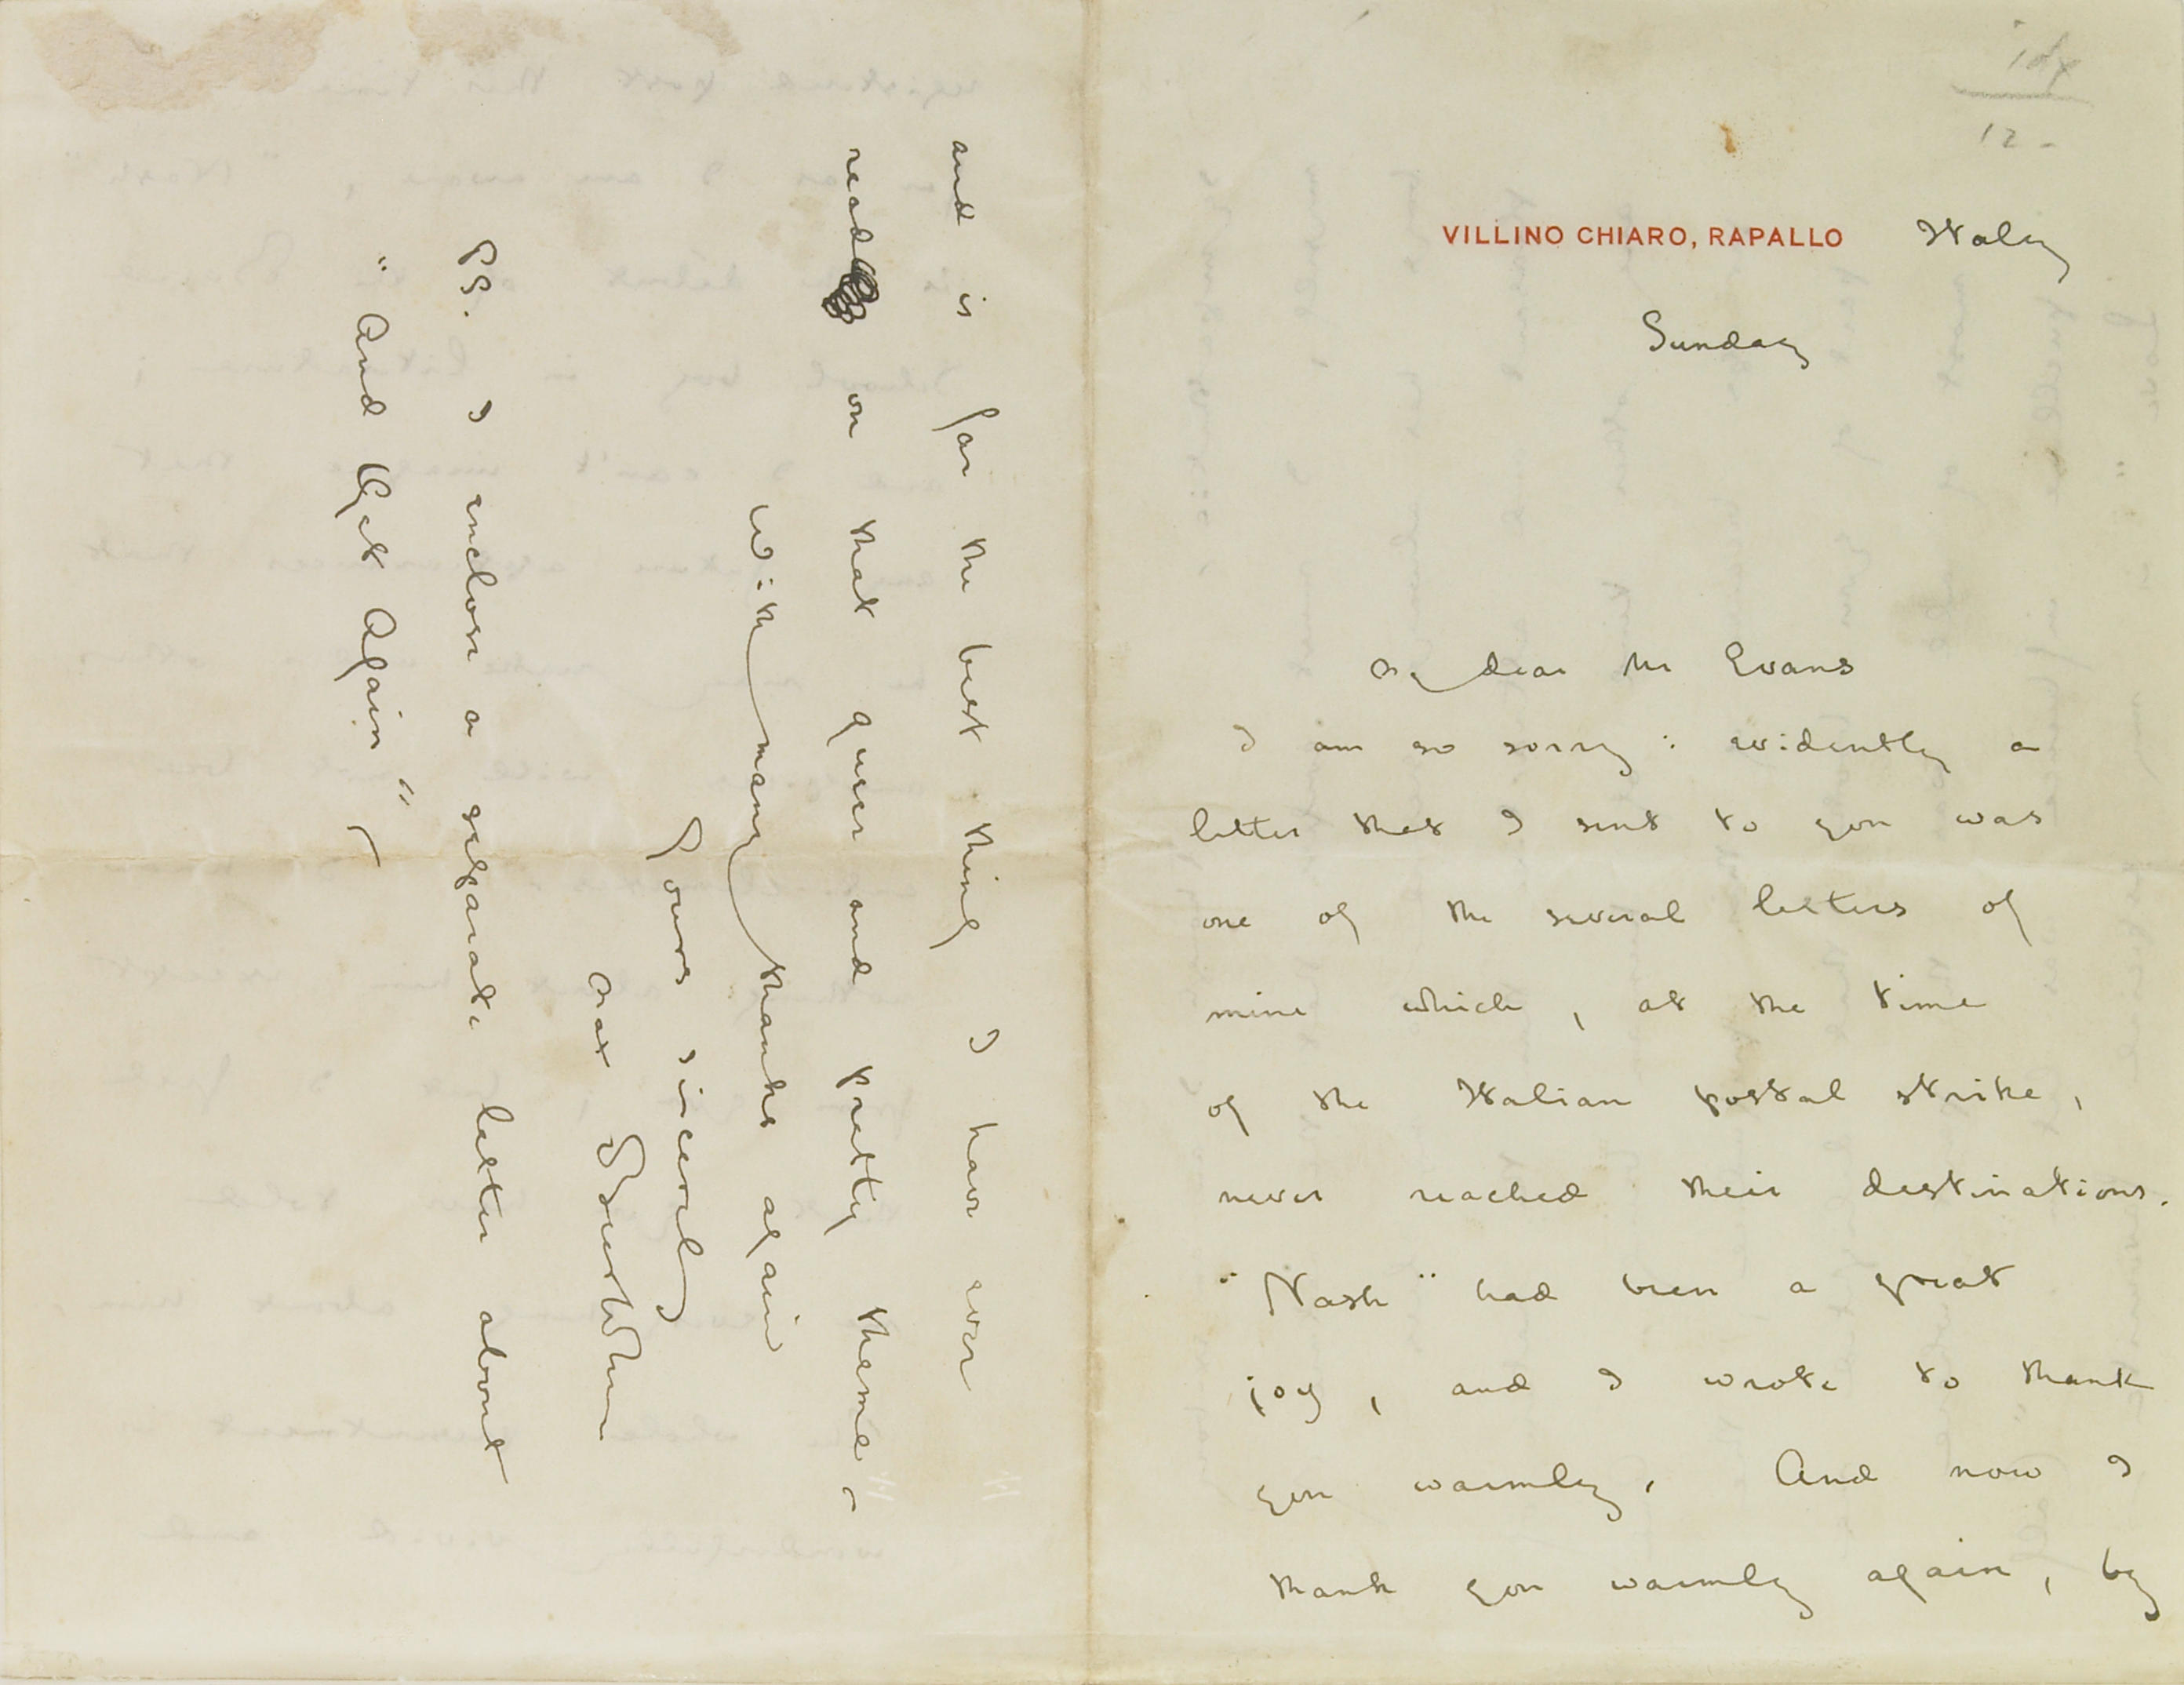 VILLINO CHIARO, RAPALLO Italy
Sunday
My dear Mr Evans
I am so sorry: evidently a
letter that I sent to you was
one of the several letters of
mine which, at the time
of the Italian postal strike,
never reached their destinations.
"Nash" had been a great
joy, and I wrote to thank
you warmly. And now I
thank you warmly again, by
and is far the best thing I have ever
read on that queer and pretty theme,—
With many thanks again
Yours sincerely
Max Beerbohm
PS. I enclose a separate letter about
"And Yet Again"—
12 -